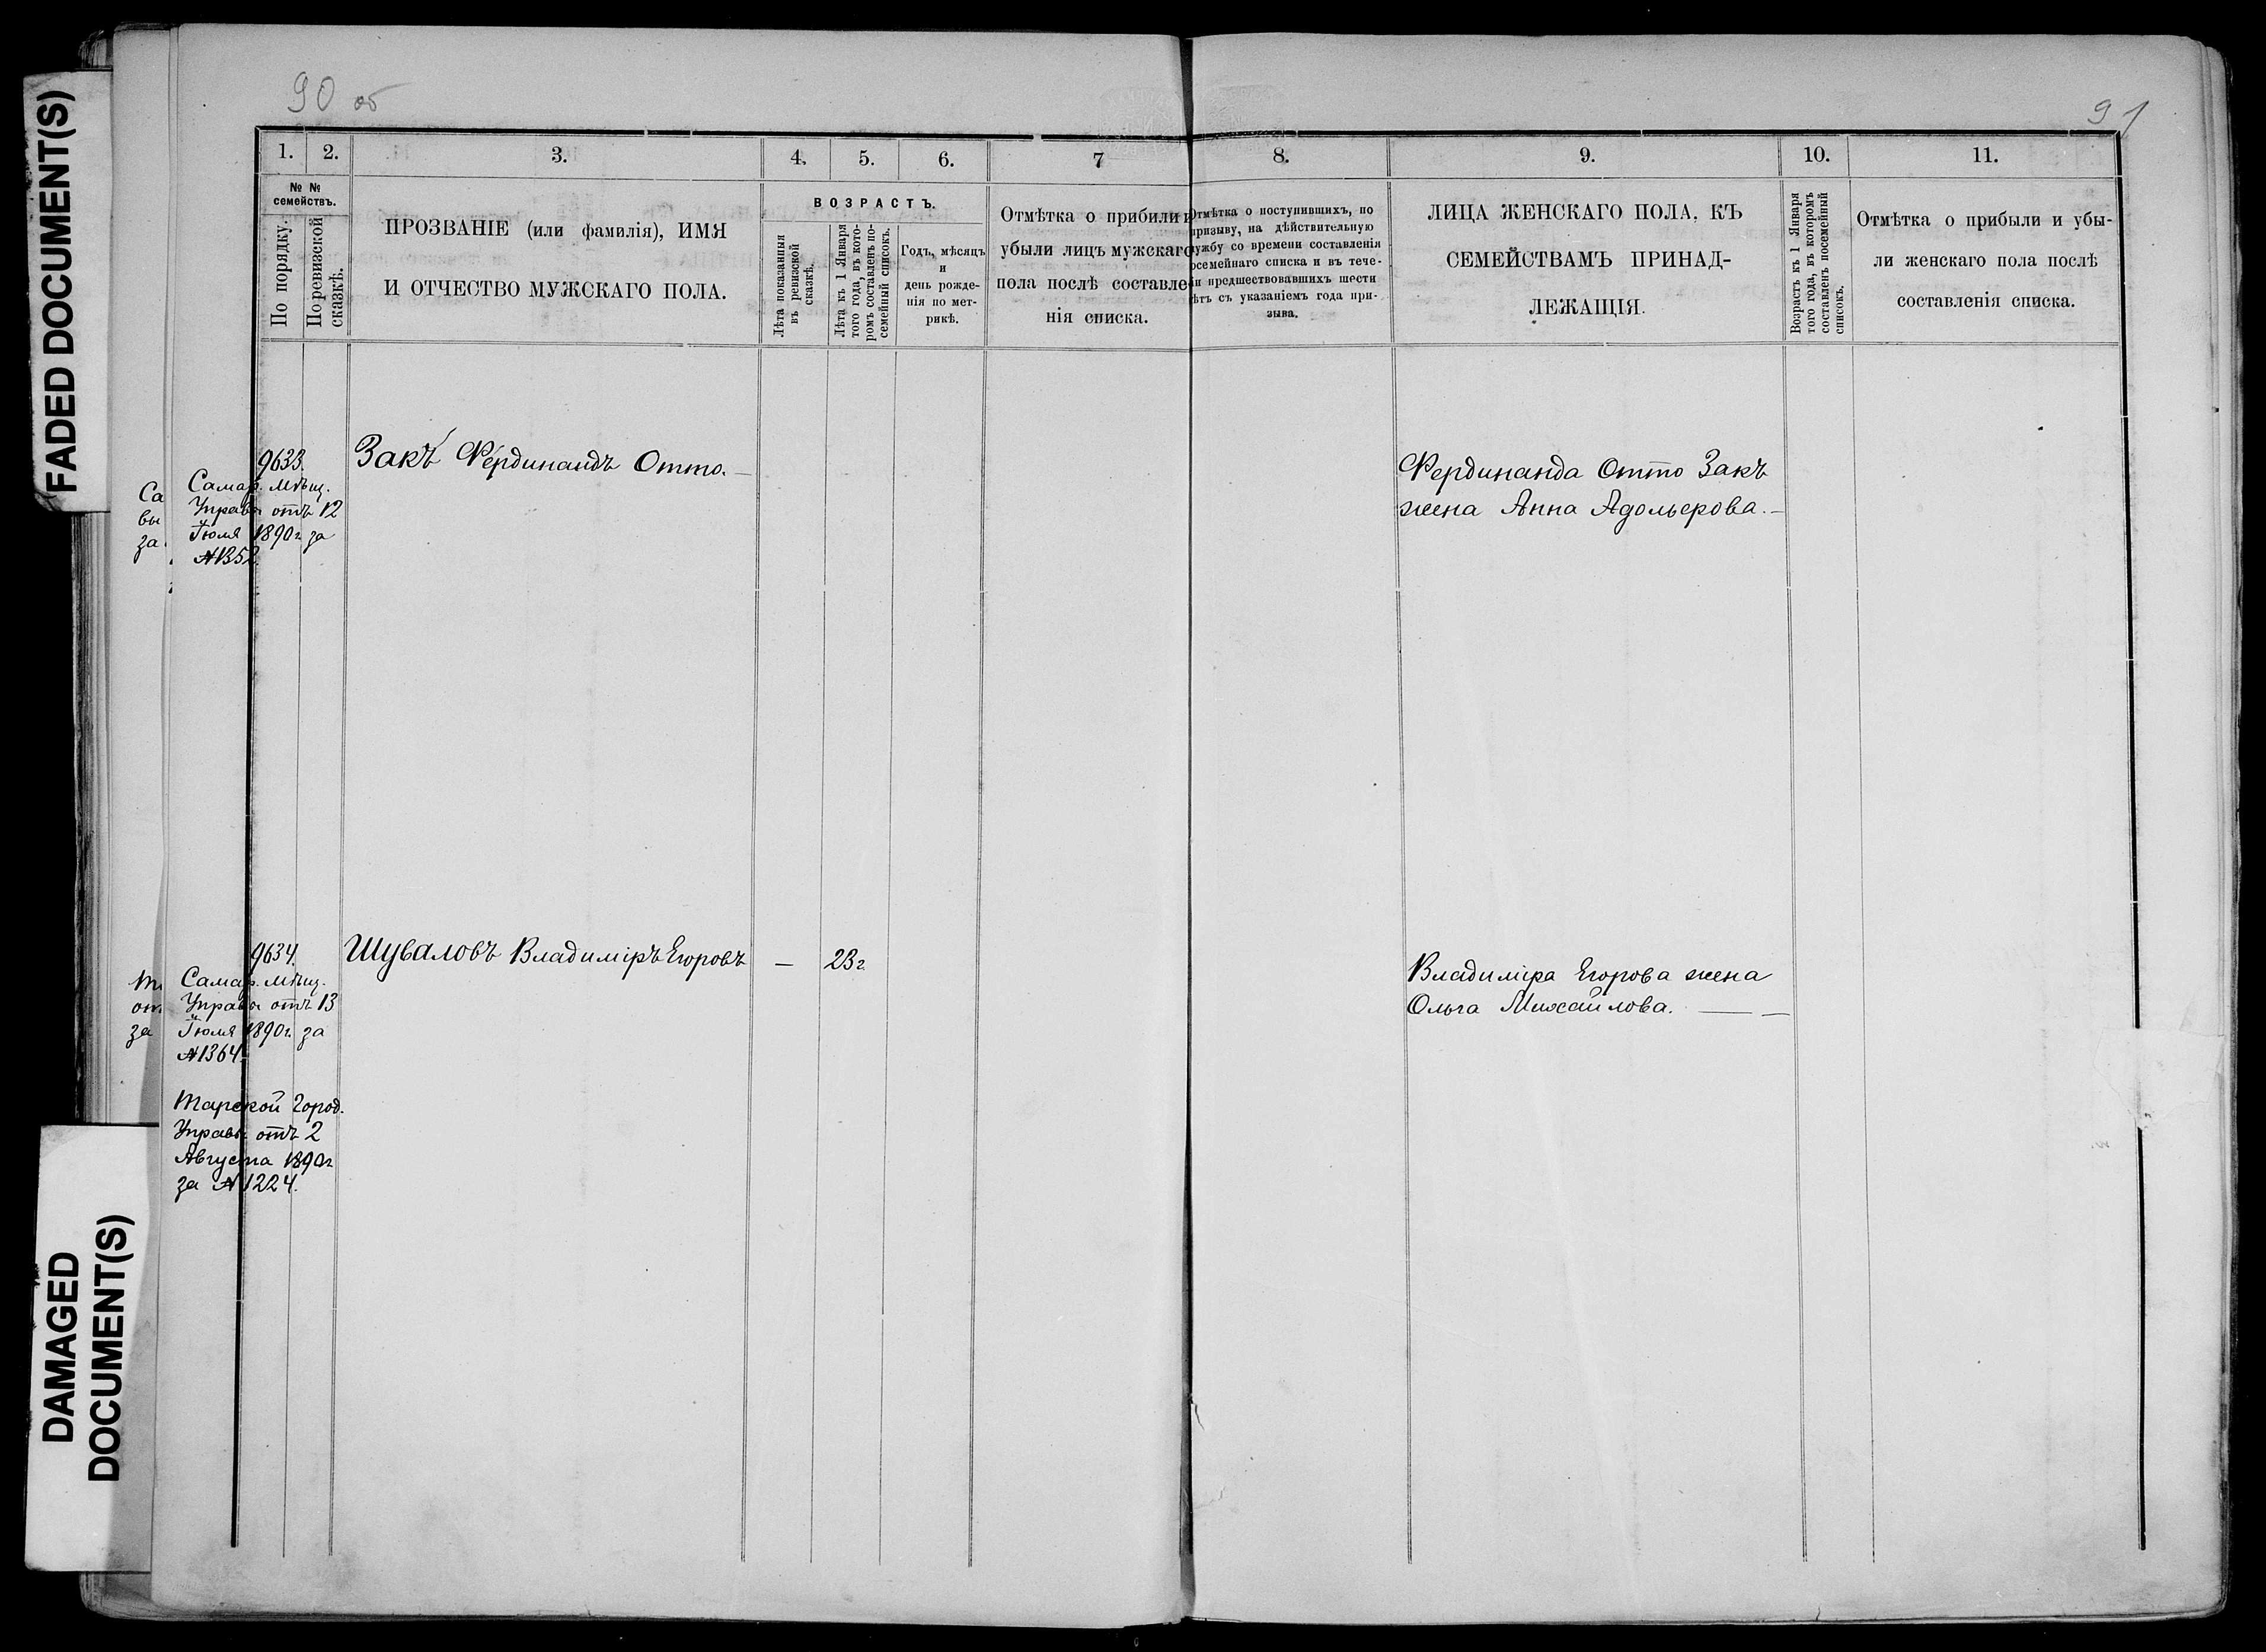 FADED DOCUMENT(S)
DAMAGED
DOCUMENT(S)
90 об
91
1. 2. 3. 4. 5. 6. 7 8. 9. 10. 11.
№ №
семействъ.
По порядку.
По ревизской
сказкѣ.
ПРОЗВАНІЕ (или фамилія), ИМЯ
И ОТЧЕСТВО МУЖСКАГО ПОЛА.
ВОЗРАСТЪ.
Лѣта показанныя
въ ревизской
сказкѣ.
Лѣта къ 1 Января
того года, въ кото-
ромъ составленъ по-
семейный списокъ.
Годъ, мѣсяцъ
и
день рожде-
нія по мет-
рикѣ.
Отмѣтка о прибыли и
убыли лицъ мужскаго
пола послѣ составле-
нія списка.
Отмѣтка о поступившихъ, по
призыву, на дѣйствительную
ужбу со времени составленія
осемейнаго списка и въ тече-
и предшествовавшихъ шести
ѣтъ съ указаніемъ года при-
зыва.
ЛИЦА ЖЕНСКАГО ПОЛА, КЪ
СЕМЕЙСТВАМЪ ПРИНАД-
ЛЕЖАЩІЯ.
Возрастъ къ 1 Января
того года, въ которомъ
составленъ посемейный
списокъ.
Отмѣтка о прибыли и убы-
ли женскаго пола послѣ
составленія списка.
9633.
Самар. Мѣщ.
Управы отъ 12
Іюля 1890г. за
№1352.
Закъ Фердинандъ Отто. —
Фердинанда Отто Закъ
жена Анна Адольфова. —
Са
вы
за
9634.
Самар. Мѣщ.
Управы отъ 13
Іюля 1890г. за
№1364.
Тарской Город.
Управы отъ 2
Августа 1890г
за №1224.
Шуваловъ Владиміръ Егоровъ — 23г.
Владиміра Егорова жена
Ольга Михайлова. — —
от
за